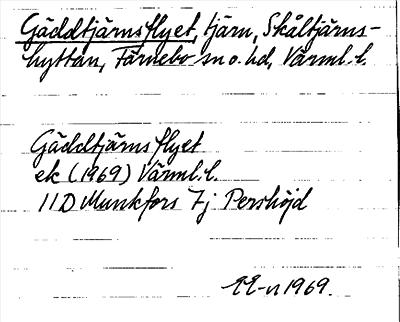 Gäddtjärnsflyet, tjärn, Skåltjärns-
hyttan, Färnebo sn o. hd, Värml. l.
Gäddtjärnsflyet
ek (1969) Värml. l.
11D Munkfors 7j Pershöjd
EE-n 1969.